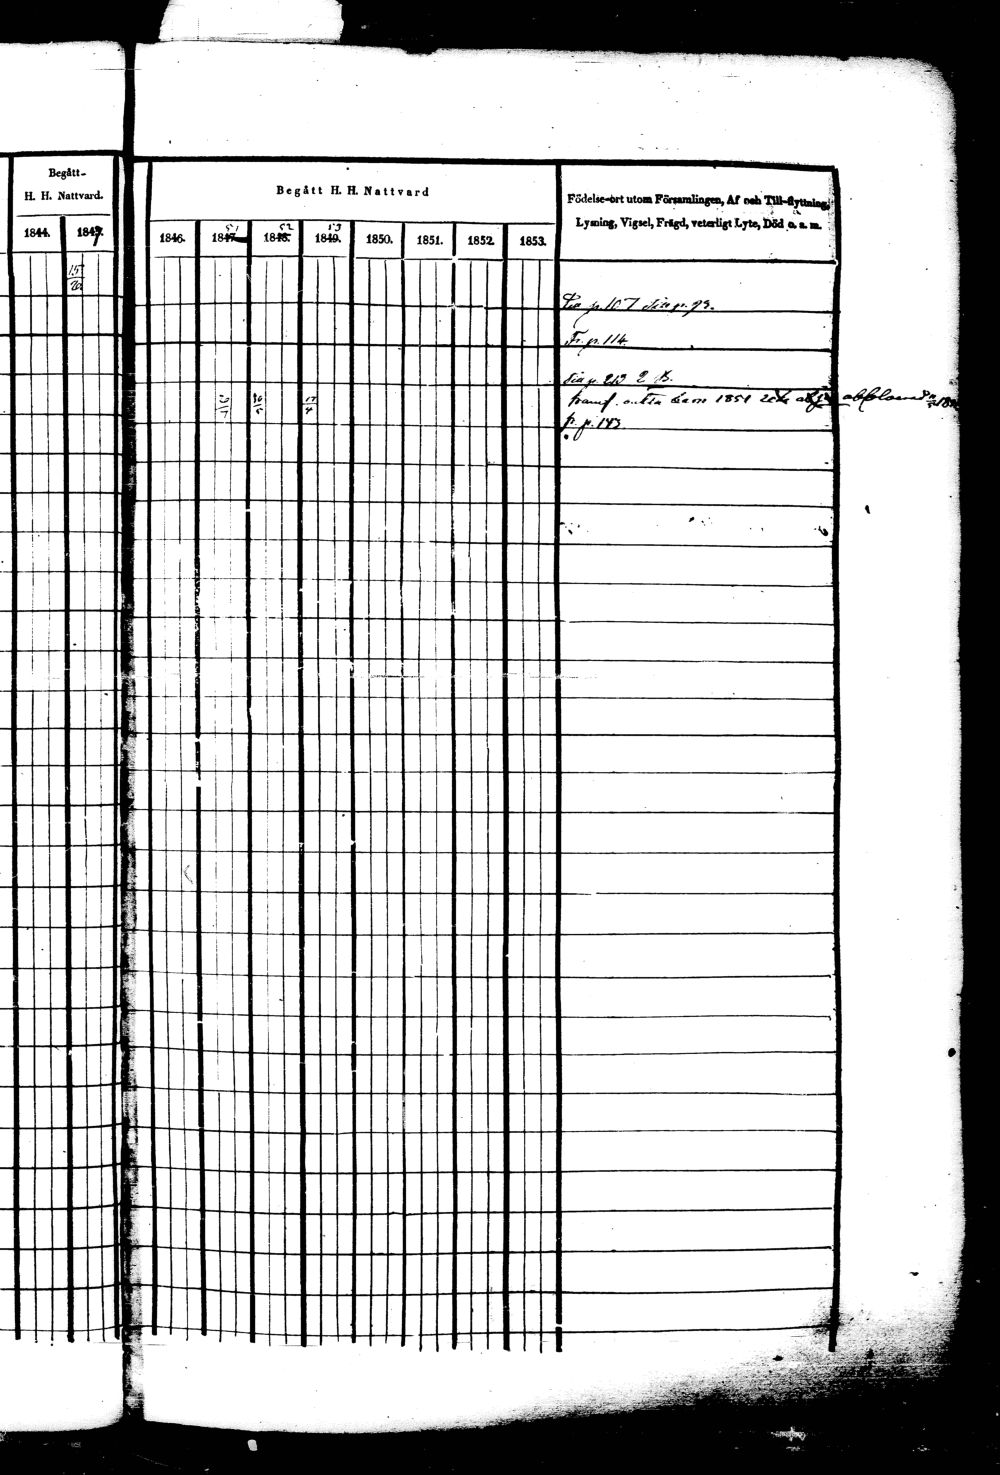 Begått-
H. H. Nattvard.
1844. 1847
15/20
Begått H. H. Nattvard
51 52 53
1846. 1847. 1848. 1849. 1850. 1851. 1852. 1853.
Födelse-ort utom Församlingen, Af och Till-flyttning,
Lysning, Vigsel, Frägd, veterligt Lyte, Död o. s. m.
p. 107 p. 93.
Fr. p. 114.
p. 213 2 B.
6/7 17/4 barn 1851
p. 143.